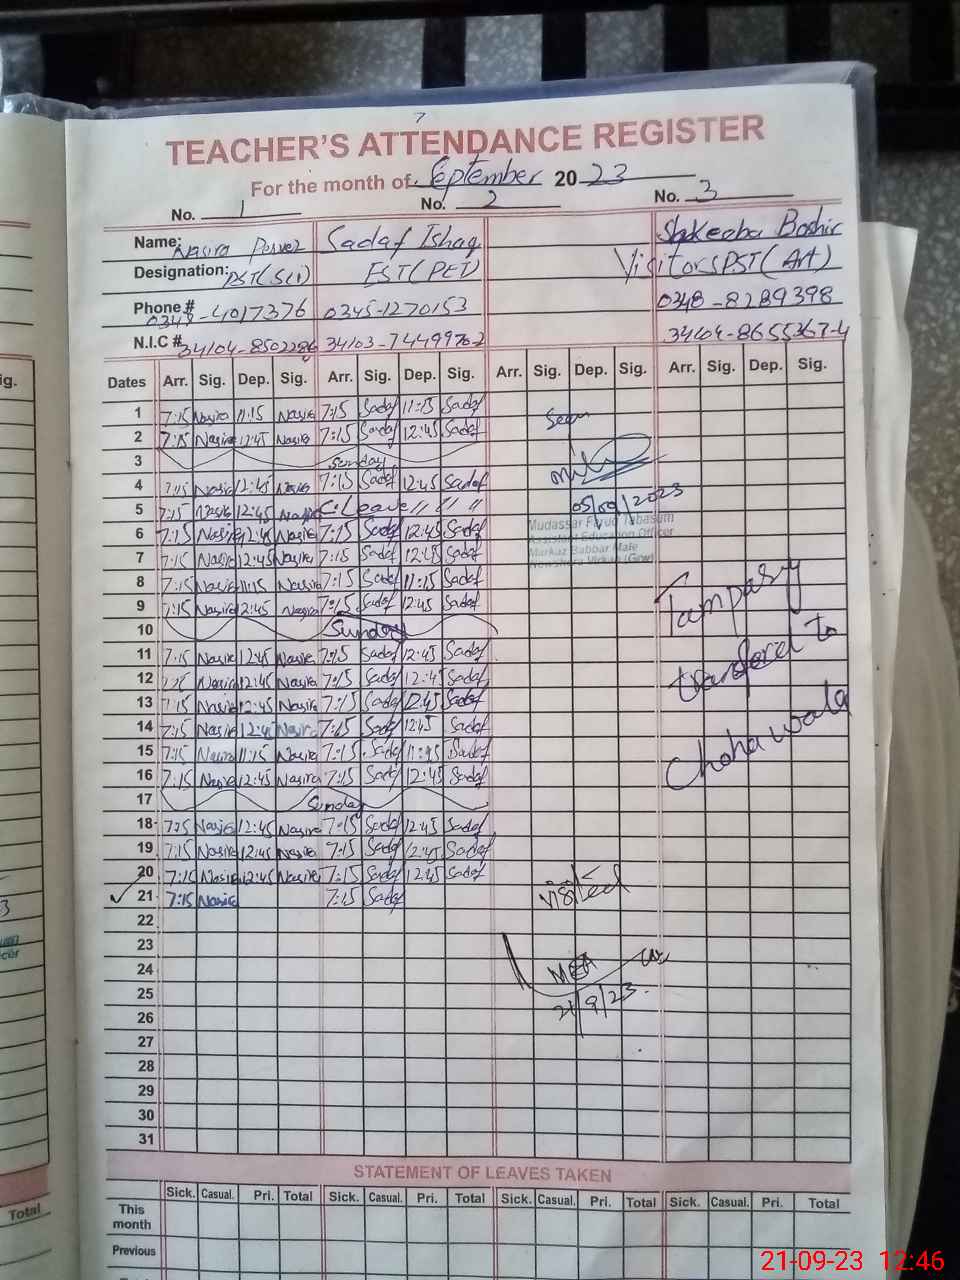 7
TEACHER'S ATTENDANCE REGISTER
For the month of September 20 23
No. 1 No. 2 No. 3
Name: Nasira Pervez Sadaf Ishaq Shakeeba Bashir
Designation: PST(Sci) EST(PET) Visitors PST(Art)
Phone # 0348-4017376 0345-1270153 0348-8289398
N.I.C # 34104-8502286 34103-7449976-2 34104-8655367-4
Dates Arr. Sig. Dep. Sig. Arr. Sig. Dep. Sig. Arr. Sig. Dep. Sig. Arr. Sig. Dep. Sig.
1 7:15 Nasira 11:15 Nasira 7:15 Sadaf 11:15 Sadaf Seen
2 7:15 Nasira 12:45 Nasira 7:15 Sadaf 12:45 Sadaf
3 Sunday
4 7:15 Nasira 12:45 Nasira 7:15 Sadaf 12:45 Sadaf
5 7:15 Nasira 12:45 Nasira C. Leave // // " 05/09/2023
6 7:15 Nasira 12:45 Nasira 7:15 Sadaf 12:45 Sadaf
Mudassar Faruq Tabasum
Assistant Education Officer
Markaz Babbar Male
Nowshera Virkan (Grw)
7 7:15 Nasira 12:45 Nasira 7:15 Sadaf 12:45 Sadaf
8 7:15 Nasira 11:15 Nasira 7:15 Sadaf 11:15 Sadaf
9 7:15 Nasira 12:45 Nasira 7:15 Sadaf 12:45 Sadaf Tampary
10 Sunday
11 7:15 Nasira 12:45 Nasira 7:15 Sadaf 12:45 Sadaf
12 7:15 Nasira 12:45 Nasira 7:15 Sadaf 12:45 Sadaf transferd to
13 7:15 Nasira 12:45 Nasira 7:15 Sadaf 12:45 Sadaf
14 7:15 Nasira 12:45 Nasira 7:15 Sadaf 12:45 Sadaf
15 7:15 Nasira 11:15 Nasira 7:15 Sadaf 11:45 Sadaf Chaha wala
16 7:15 Nasira 12:45 Nasira 7:15 Sadaf 12:45 Sadaf
17 Sunday
18 7:15 Nasira 12:45 Nasira 7:15 Sadaf 12:45 Sadaf
19 7:15 Nasira 12:45 Nasira 7:15 Sadaf 12:45 Sadaf
20 7:15 Nasira 12:45 Nasira 7:15 Sadaf 12:45 Sadaf
21 7:15 Nasira 7:15 Sadaf visited
22
23
24 MEA
25 21/9/23
26
27
28
29
30
31
STATEMENT OF LEAVES TAKEN
Sick. Casual. Pri. Total Sick. Casual. Pri. Total Sick. Casual. Pri. Total Sick. Casual. Pri. Total
This month
Previous
Total
21-09-23 12:46